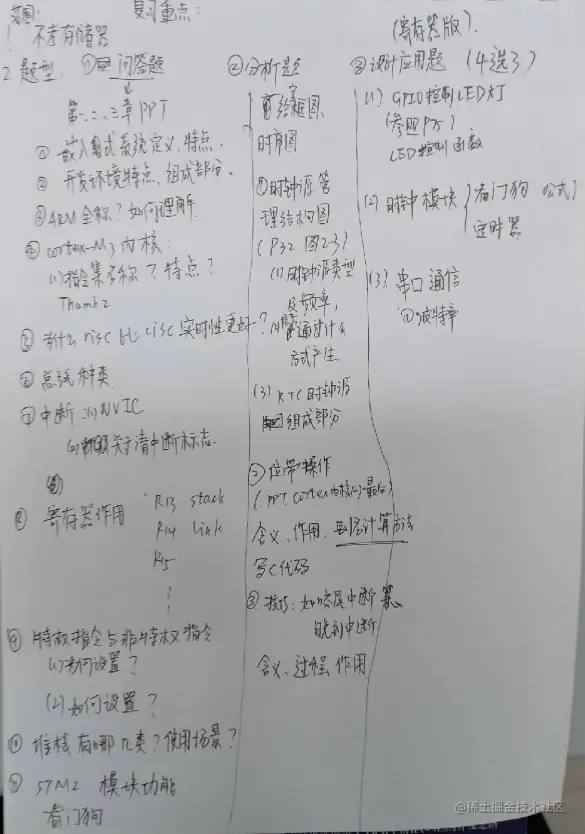 范围:
复习重点:
1. 不考存储器
2. 题型: ① 问答题
第一、二、三章PPT
① 嵌入式系统定义、特点.
② 开发环境特点、组成部分.
③ ARM全称? 如何理解
④ cortex-M3 内核:
(1) 指令集名称? 特点?
Thumb2
⑤ 为什么 risc 比 cisc 实时性更好?
⑥ 总线种类
⑦ 中断 (1) NVIC
(2) 关于清中断标志.
⑧ 寄存器作用 R13 stack
R14 link
R15
⑨ 特权指令与非特权指令
(1) 为何设置?
(2) 如何设置?
⑩ 堆栈有哪几类? 使用场景?
模块功能
看门狗
② 分析题
给框图、
时序图
① 时钟源管
理结构图
(P32 图2-3)
(1) 时钟源类型
及频率,
通过什么
方式产生.
(3) RTC时钟源
组成部分
② 位带操作
(PPT cortex内核 最后)
含义、作用、计算方法
写C代码
③ 中断
中断
含义、过程、作用
(寄存器版).
③ 设计应用题 (4选3)
(1) GPIO控制LED灯
(参照 )
LED控制函数
(2) 时钟模块 { 看门狗 公式
定时器
(3) 串口通信
① 波特率
@稀土掘金技术社区